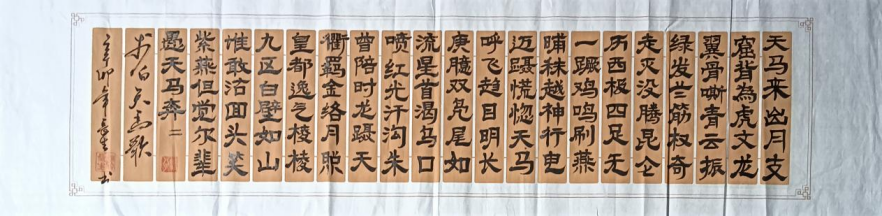 天马来出月支
窟背為虎文龙
翼骨嘶青云振
绿发兰筋权奇
走灭没腾昆仑
历西极四足无
一蹶鸡鸣刷燕
晡秣越神行电
迈蹑慌惚天马
呼飞趋目明长
庚臆双凫尾如
流星首渴乌口
喷红光汗沟朱
曾陪时龙蹑天
衢羁金络月照
皇都逸气棱棱
九区白璧如山
谁敢沽回头笑
紫燕但觉尔辈
愚天马奔
李白天马歌
辛卯年 书